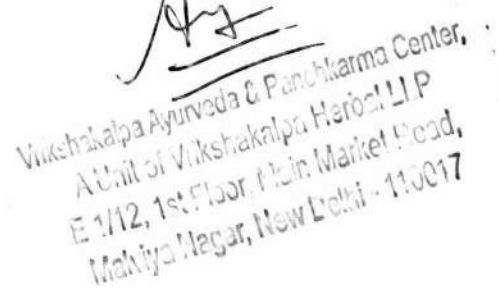 Vrikshakalpa Ayurveda & Panchkarma Center,
A Unit of Vrikshakalpa Herbal LLP
E 1/12, 1st Floor, Main Market Road,
Malviya Nagar, New Delhi - 110017